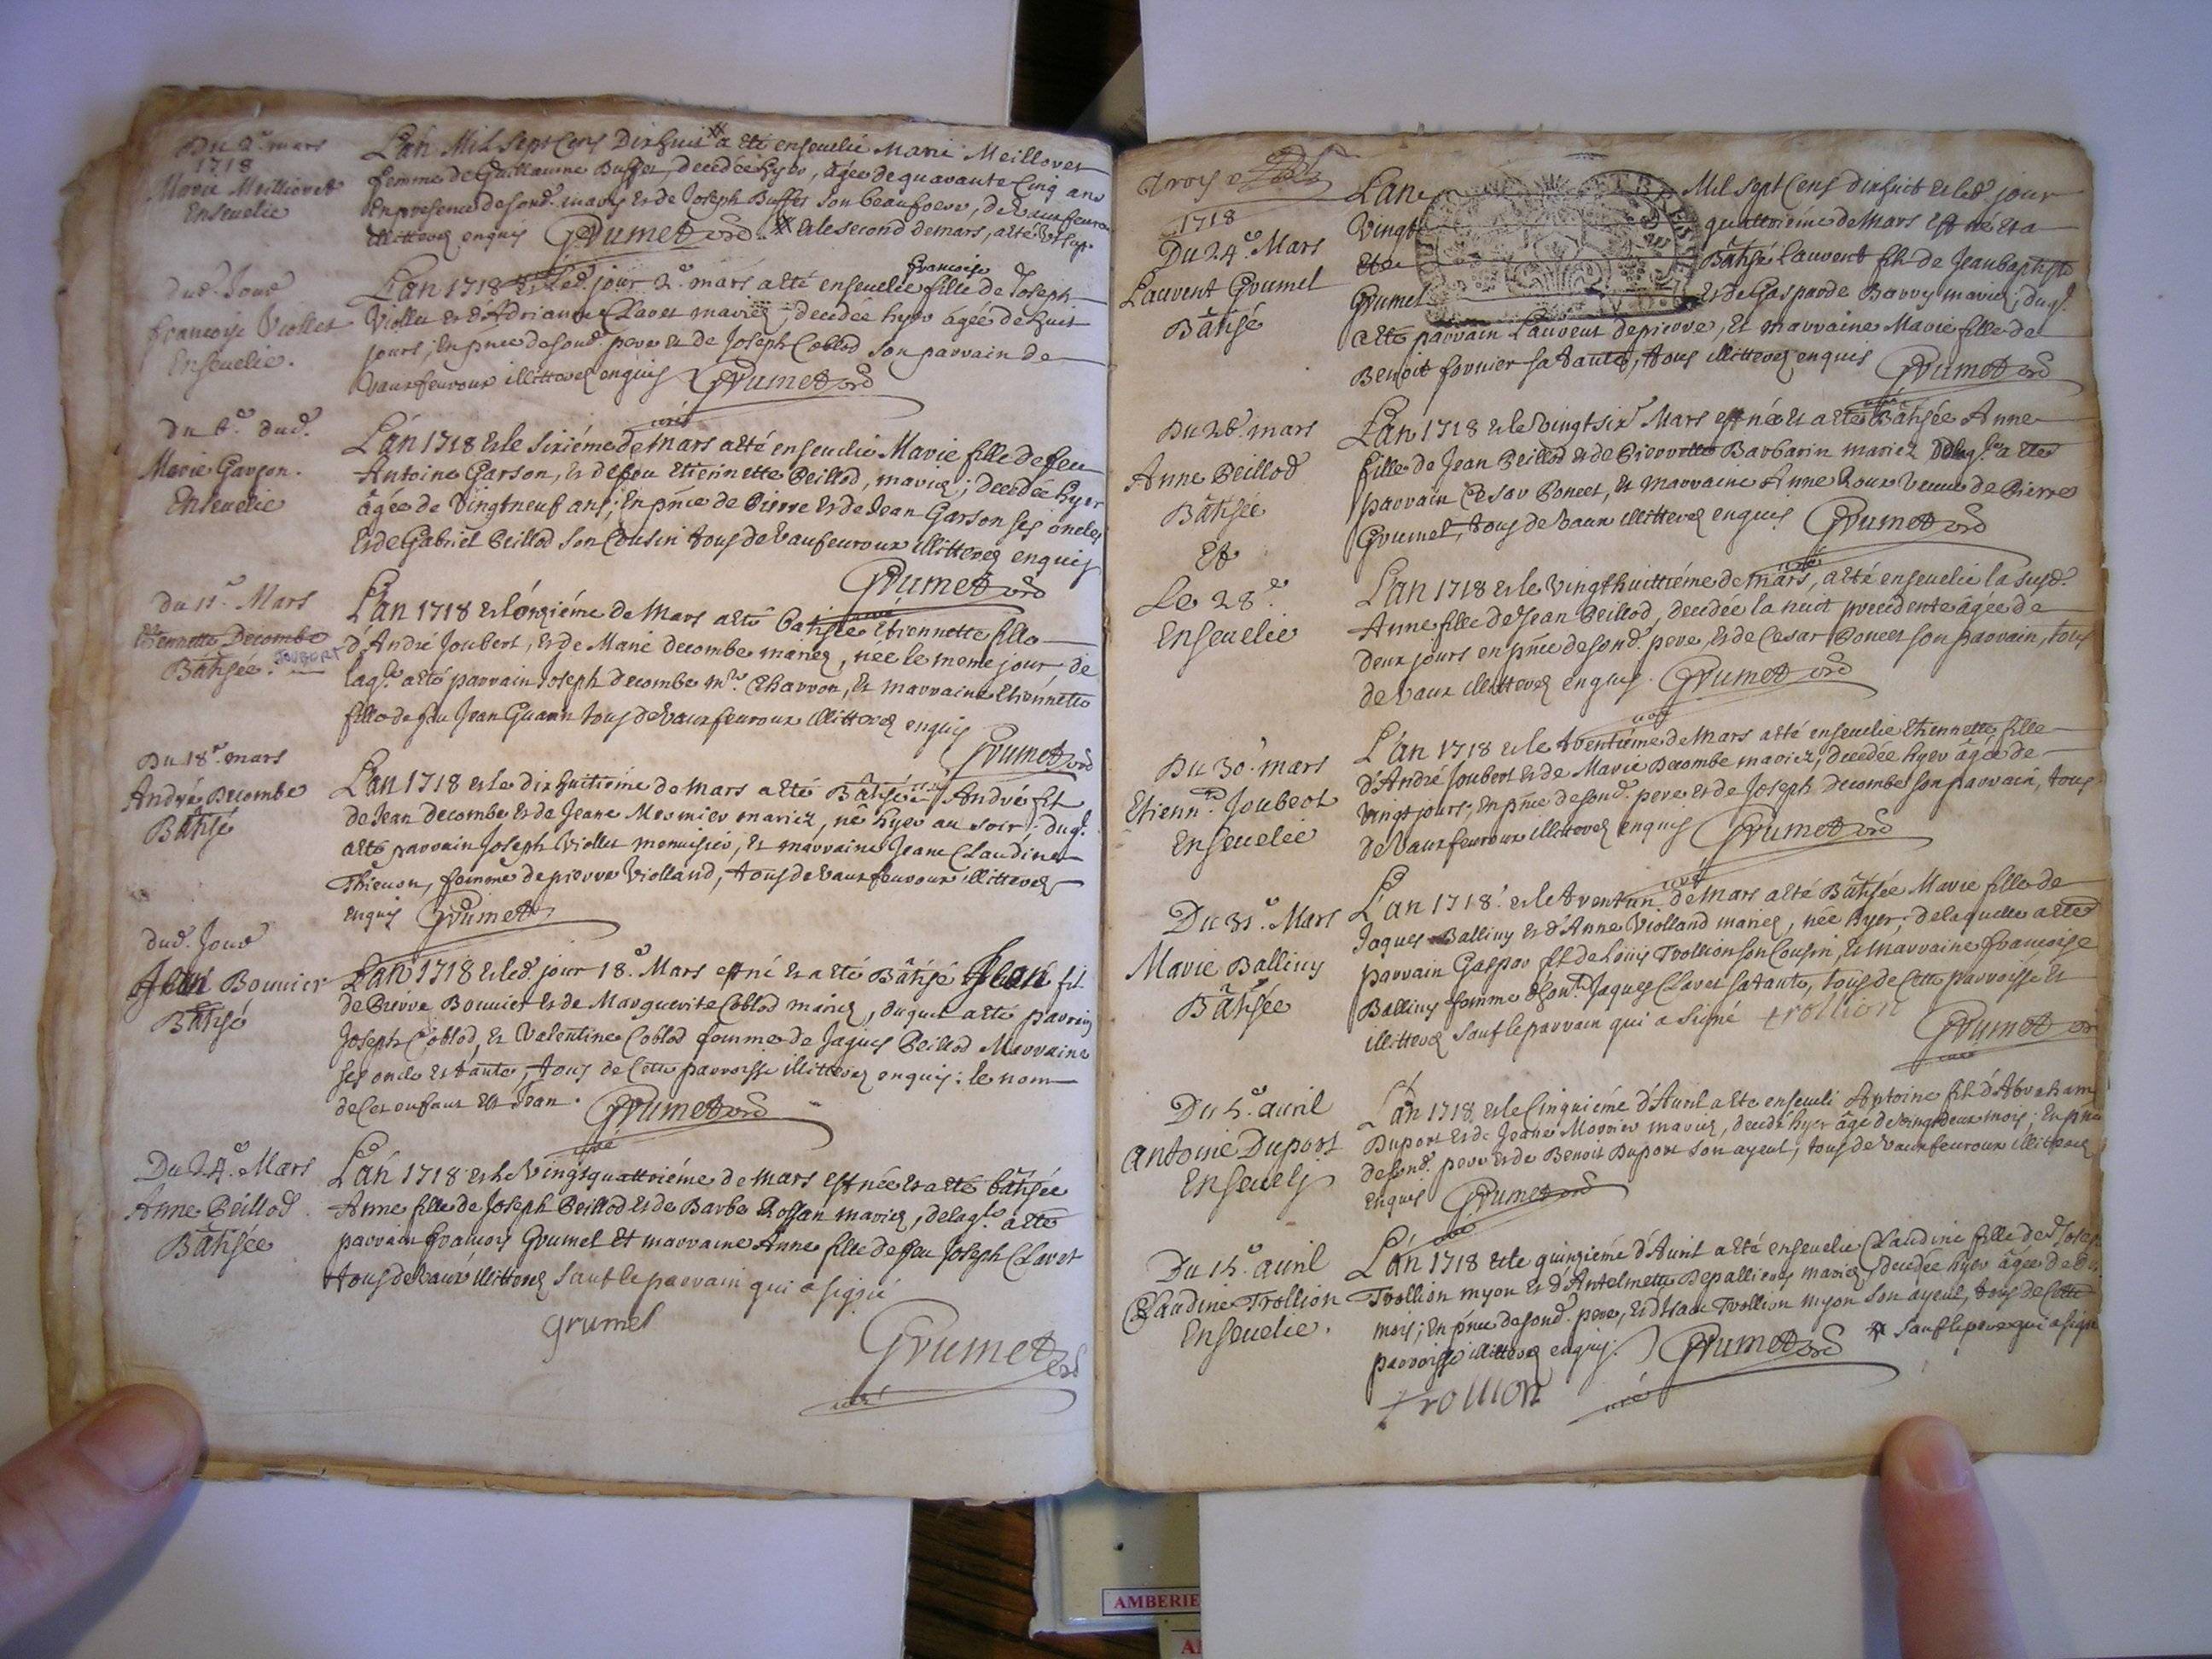 Du 2e mars
1718
Marie Meilloret
Enseuelie
L'an Mil Sept Cens Dixhuit a été enseuelie Marie Meilloret
femme de Guillaume Buffet, decedée hyer, âgée de quarante Cinq ans
En presence de sond. mary et de Joseph Buffet son beaufrere, de Vauxfeuroux
illitterez enquis Grumet curé et le second de mars, a été
dud. Jour
francoise Viollet
Enseuelie.
francoise
L'an 1718 et led. jour 2e. mars a été enseuelie fille de Joseph
Viollet et d'Adrianne Clavet mariez; decedée hyer âgée de huit
jours; En pnce de sond. pere et de Joseph Coblod son parrain de
Vauxfeuroux illitterez enquis Grumet
curé
du 6e. dud.
Marie Garson.
Enseuelie
L'an 1718 et le sixiéme de Mars a été enseuelie Marie fille de feu
Antoine Garson, et de feu Etiennette Beillod, mariez; decedée hyer
âgée de Vingtneuf ans; En pnce de Pierre et de Jean Garson ses oncles
et de Gabriel Beillod son Cousin tous de Vauxfeuroux illitterez enquis
Grumet
curé
du 11e. Mars
Etiennette Decombe
JOUBERT
Bâtisée.
L'an 1718 et l'onziéme de Mars a été batisée Etiennette fille
d'André Joubert, et de Marie decombe mariez, née le meme jour, de
laqle a été parrain Joseph decombe mre. Charron, et marraine Etiennette
fille de feu Jean tous de Vauxfeuroux illitterez enquis
Grumet
curé
Du 18e. mars
André Decombe
Bâtisé
L'an 1718 et le dixhuitiéme de mars a été Bâtisé André fils
de Jean decombe et de Jeane Mesmier mariez, né hyer au soir; duql.
a été parrain Joseph Viollet menuisier, et marraine Jeane Claudine
Thienon, femme de pierre Violland, tous de Vauxfeuroux illitterez
enquis Grumet
dud. Jour
Jean Bouuier
Bâtisé
L'an 1718 et led. jour 18e. Mars est né et a été Bâtisé Jean fils
de Pierre Bouuier et de Marguerite Coblod mariez, duquel a été parrain
Joseph Coblod, et Valentine Coblod femme de Jaques Beillod Marraine
ses oncle et tante, tous de Cette parroisse illitterez enquis: le nom
de Cet enfant est Jean. Grumet
curé
Du 24e. Mars
Anne Beillod.
Bâtisée
L'an 1718 et le Vingtquattriéme de mars est née et a été bâtisée
Anne fille de Joseph Beillod et de Barbe Rossan mariez, de laqle a été
parrain francois Grumel et marraine Anne fille de feu Joseph Clavet
tous de Vaux illitterez sauf le parrain qui a signé
grumel
Grumet
curé
Troys e
1718
Du 24e Mars
Laurent Grumel
Bâtisé
L'an Mil Sept Cens dixhuit et led. jour
Vingt quattrieme de Mars est né et a
Eté Bâtisé Laurent fils de Jean baptiste
Grumel et de Gasparde Barry mariez; duql.
a été parrain Laurent depierre, et marraine Marie fille de
Benoit fornier sa tante, tous illitterez enquis Grumet
curé
Du 26. mars
Anne Beillod
Bâtisée
Et
Le 28e.
Enseuelie
L'an 1718 et le Vingt six Mars est née et a été Bâtisée Anne
fille de Jean Beillod et de Pierrette Barbarin mariez De laqle a été
parrain Cesar Poncet, et marraine Anne Roux veuue de Pierre
Grumel, tous de Vaux illitterez enquis Grumet
curé
L'an 1718 et le Vingthuittiéme de mars, a été enseuelie la susd.
Anne fille de Jean Beillod, decedée la nuit precedente âgée de
deux jours en pnce de sond. pere, et de Cesar Poncet son parrain, tous
de Vaux illitterez enquis. Grumet
curé
Du 30e. mars
Etiennte. Joubert
Enseuelie
L'an 1718 et le trentiéme de Mars a été enseuelie Etiennette fille
d'André Joubert et de Marie Decombe mariez, decedée hyer âgée de
Vingt jours, En pnce de sond. pere et de Joseph decombe son parrain, tous
de Vauxfeuroux illitterez enquis Grumet
curé
Du 31e. Mars
Marie Balliuy
Bâtisée
L'an 1718. et le trent'un de Mars a été Bâtisée Marie fille de
Jaques Balliuy et d'Anne Violland mariez, née hyer; de laquelle a été
parrain Gaspar fils de Louis Trollion son Cousin, et marraine françoise
Balliuy femme d'hont. Jaques Clavet sa tante, tous de cette parroisse et
illitterez sauf le parrain qui a signé trollion
Grumet
curé
Du 5e. auril
Antoine Duport
Enseuely
L'an 1718 et le Cinquiéme d'Auril a été enseueli Antoine fils d'Abraham
Duport et de Jeane Mornier mariez, decedé hyer âgé de Vingtdeux mois; En pnce
de sond. pere et de Benoit Duport son ayeul, tous de Vauxfeuroux illitterez
Enquis Grumet
curé
Du 15e. auril
Claudine Trollion
Enseuelie.
L'an 1718 et le quinziéme d'Auril a été enseuelie Claudine fille de Joseph
Trollion myon et d'Antelmette Depallieres mariez, decedée hyer âgée de
mois; En pnce de sond. pere, et d'Isaac Trollion myon son ayeul, tous de Cette
parroisse illitterez enquis. Grumet sauf le pere qui a signé
trollion
curé
AMBERIE
A